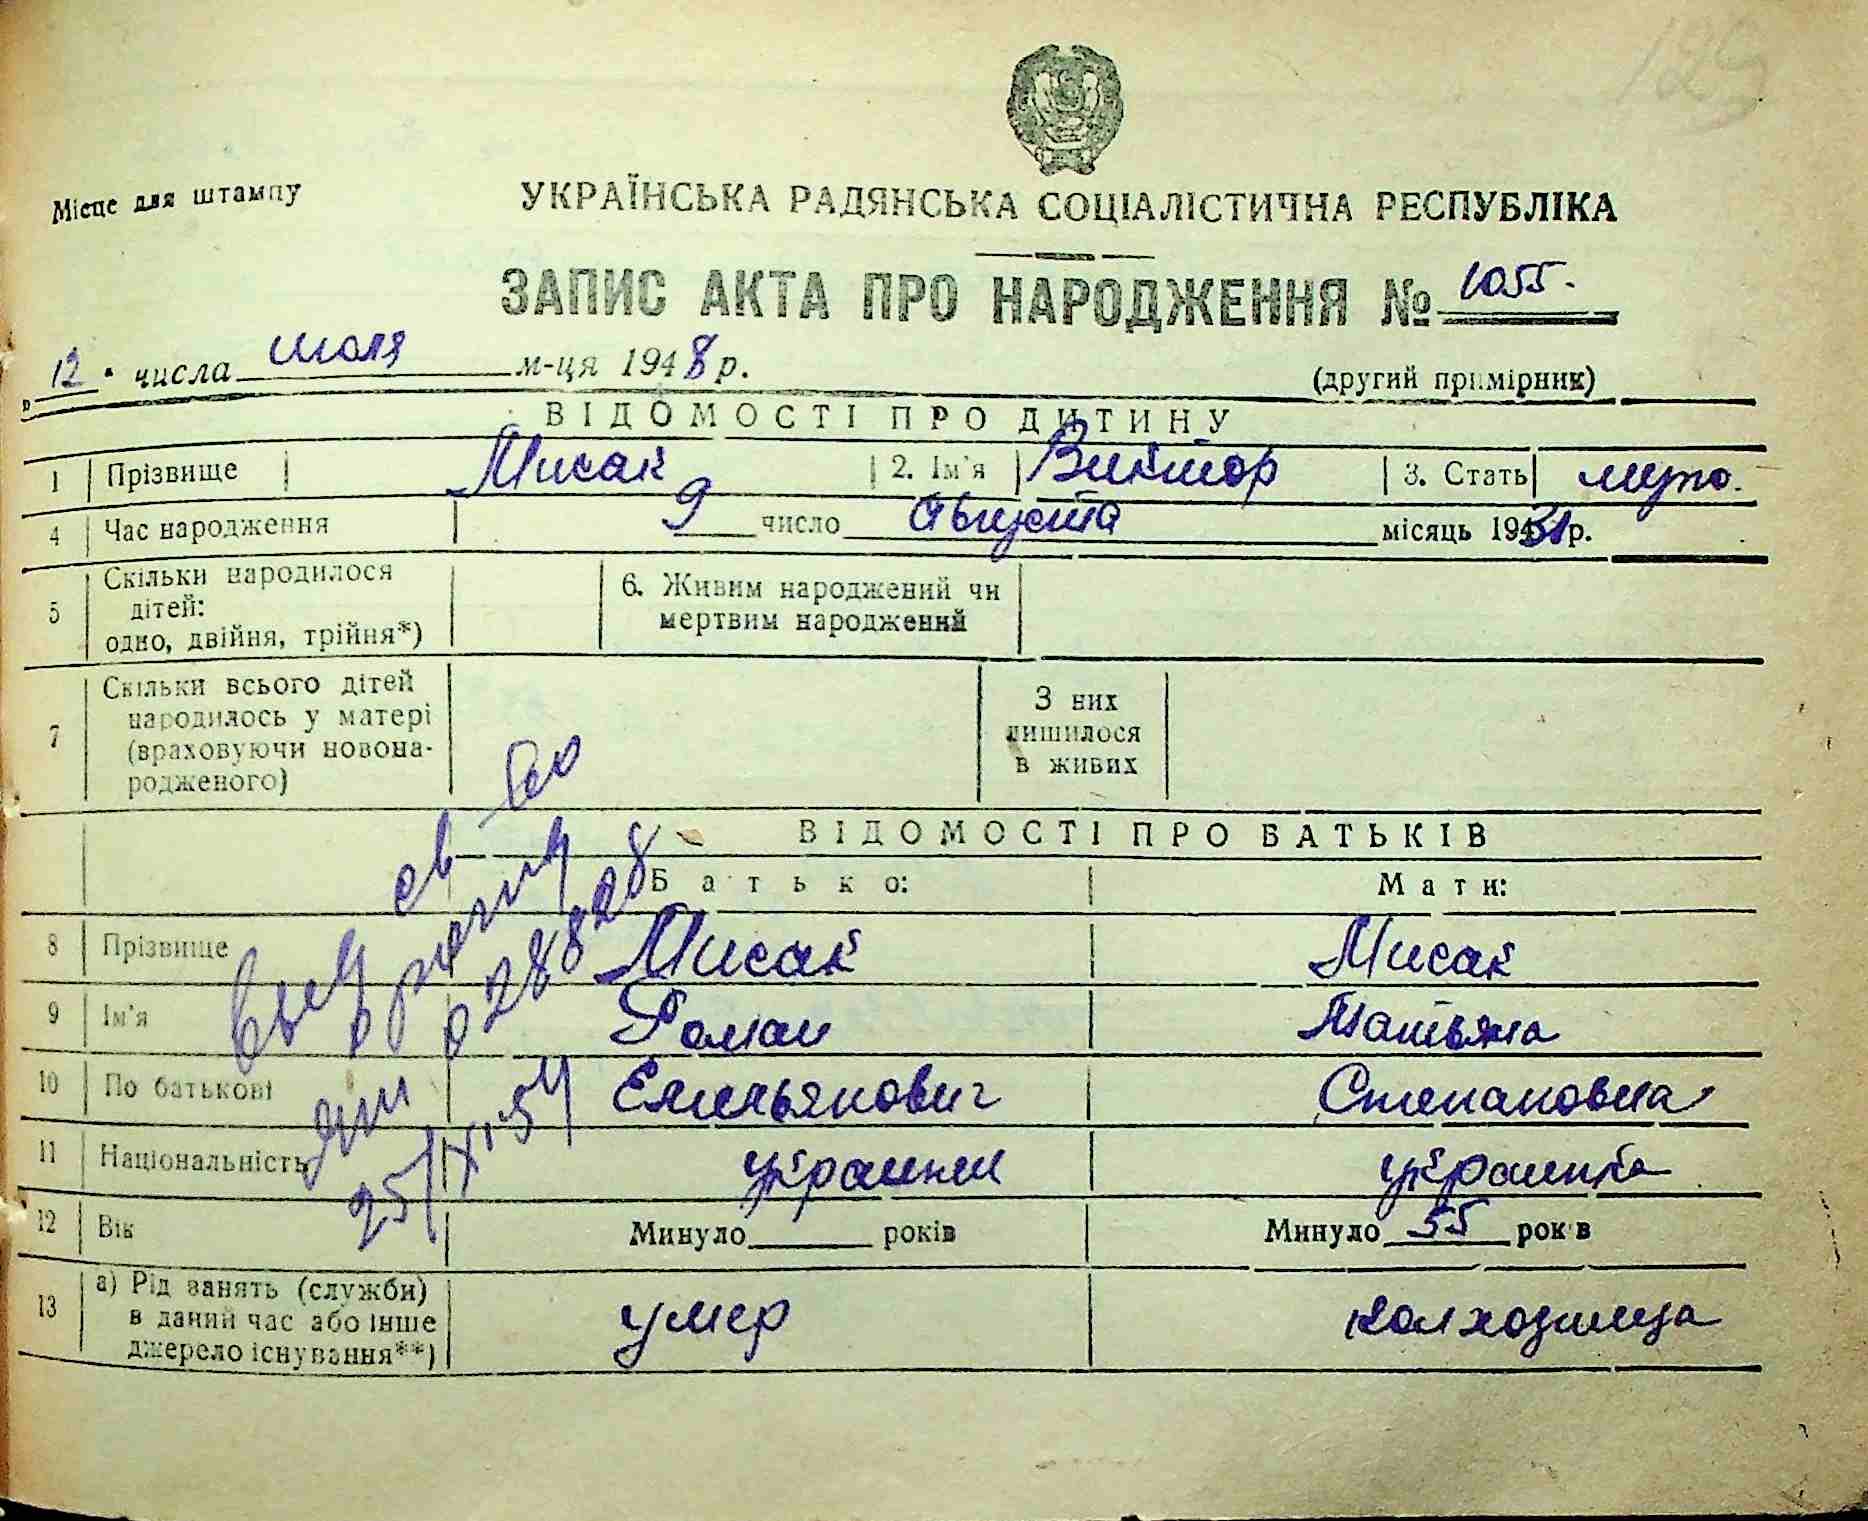 129
Місце для штампу
УКРАЇНСЬКА РАДЯНСЬКА СОЦІАЛІСТИЧНА РЕСПУБЛІКА
ЗАПИС АКТА ПРО НАРОДЖЕННЯ № 1055.
12 числа июля м-ця 1948 р.
(другий примірник)
ВІДОМОСТІ ПРО ДИТИНУ
1 Прізвище Мисак 2. Ім'я Виктор 3. Стать муж.
4 Час народження 9 число Августа місяць 1931 р.
5 Скільки народилося дітей: одно, двійня, трійня*) 6. Живим народжений чи мертвим народжений
7 Скільки всього дітей народилось у матері (враховуючи новонародженого) З них лишилося в живих
ВІДОМОСТІ ПРО БАТЬКІВ
Батько: Мати:
8 Прізвище Мисак Мисак
9 Ім'я Роман Татьяна
10 По батькові Емельянович Степановна
11 Національність украинец украинка
12 Вік Минуло років Минуло 55 років
13 а) Рід занять (служби) в даний час або інше джерело існування**) умер колхозница
св-во
028828
25/IX-54